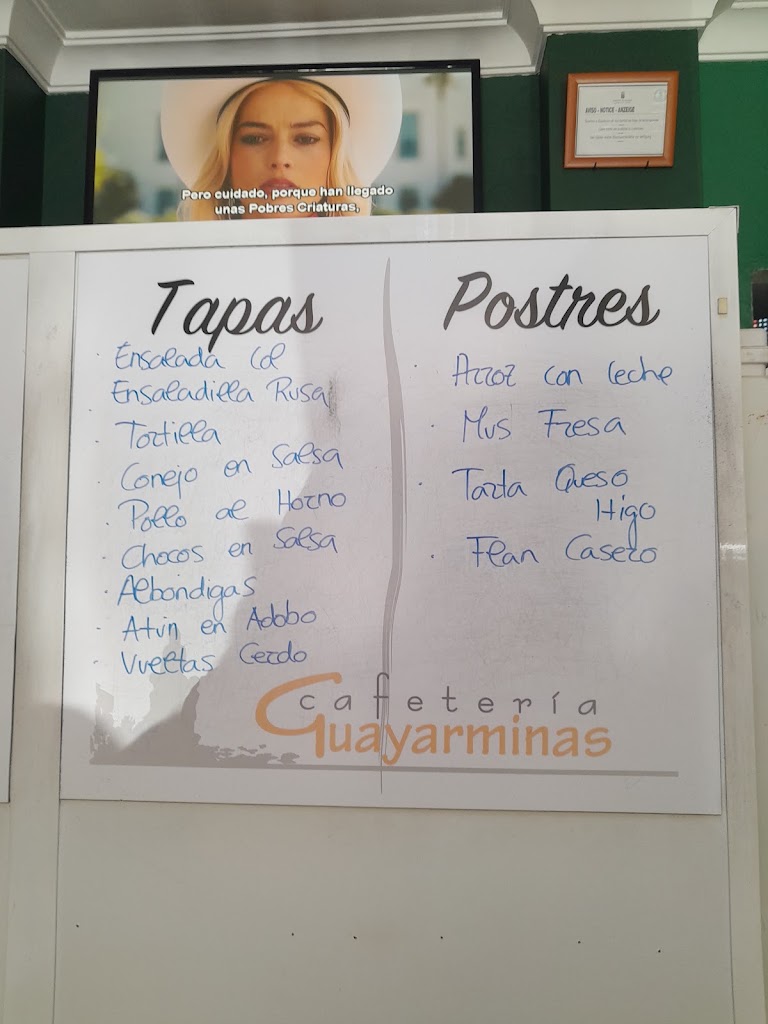 Pero cuidado, porque han llegado
unas Pobres Criaturas,
AVISO - NOTICE - ANZEIGE
Tapas
Ensalada Col
Ensaladilla Rusa
Tortilla
Conejo en Salsa
Pollo al Horno
Chocos en Salsa
Albondigas
Atún en Adobo
Vueltas Cerdo
Postres
Arroz con leche
Mus Fresa
Tarta Queso
Higo
Flan Casero
cafetería
Guayarminas